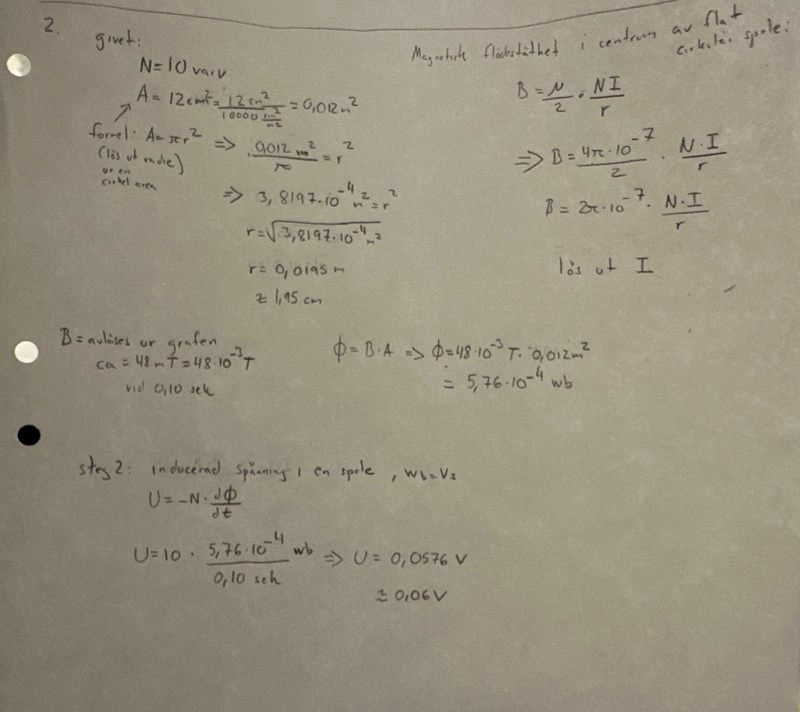 2.
givet:
N=10 varv
A = 12cm² = 12cm² / 10000 cm²/m² = 0,012m²
formel: A=πr²
(lös ut radie)
ur en
cirkel area
=> 0,012 m² / π = r²
=> 3,8197·10⁻⁴ m² = r²
r=√3,8197·10⁻⁴ m²
r= 0,0195 m
≈ 1,95 cm
Magnetisk flödestäthet i centrum av flat
cirkulär spole:
B = μ/2 · NI/r
=> B = 4π·10⁻⁷/2 · N·I/r
B = 2π·10⁻⁷ · N·I/r
lös ut I
B = avläses ur grafen
ca = 48 mT = 48·10⁻³T
vid 0,10 sek
ϕ = B·A => ϕ=48·10⁻³ T · 0,012m²
= 5,76·10⁻⁴ wb
steg 2: inducerad spänning i en spole, Wb=Vs
U = -N · dϕ/dt
U = 10 · 5,76·10⁻⁴ wb / 0,10 sek => U = 0,0576 V
≈ 0,06 V